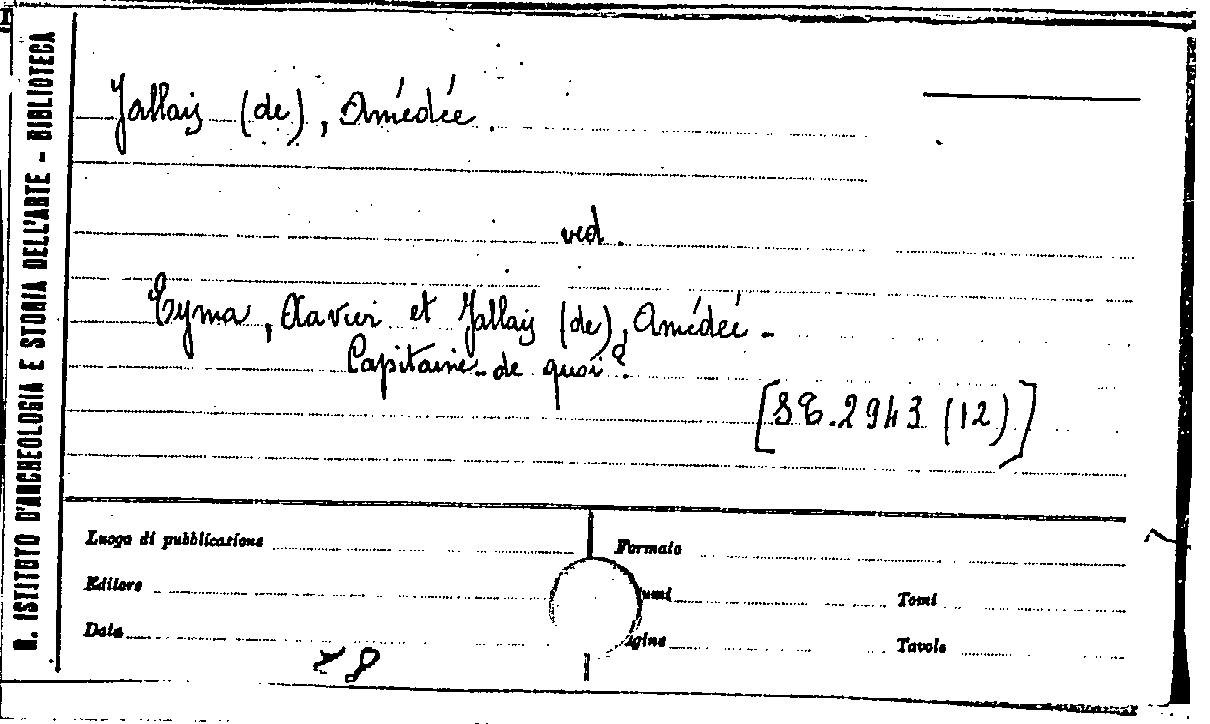 R. ISTITUTO D'ARCHEOLOGIA E STORIA DELL'ARTE - BIBLIOTECA
Jallais (de), Amédée.
ved.
Eyma, Xavier et Jallais (de), Amédée -
Capitaine de quoi?
[SC.2943 (12)]
Luogo di pubblicazione
Formato
Editore
umi
Tomi
Data
agine
Tavole